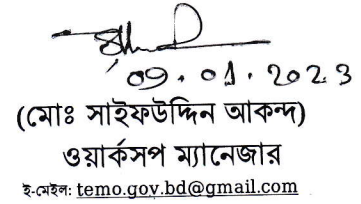 ০৭.০১.২০২৩
(মোঃ সাইফউদ্দিন আকন্দ)
ওয়ার্কসপ ম্যানেজার
ই-মেইল: temo.gov.bd@gmail.com